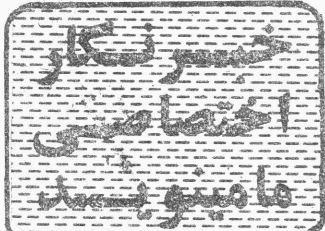 خبرنگار
اختصاصی
ما مینویسد